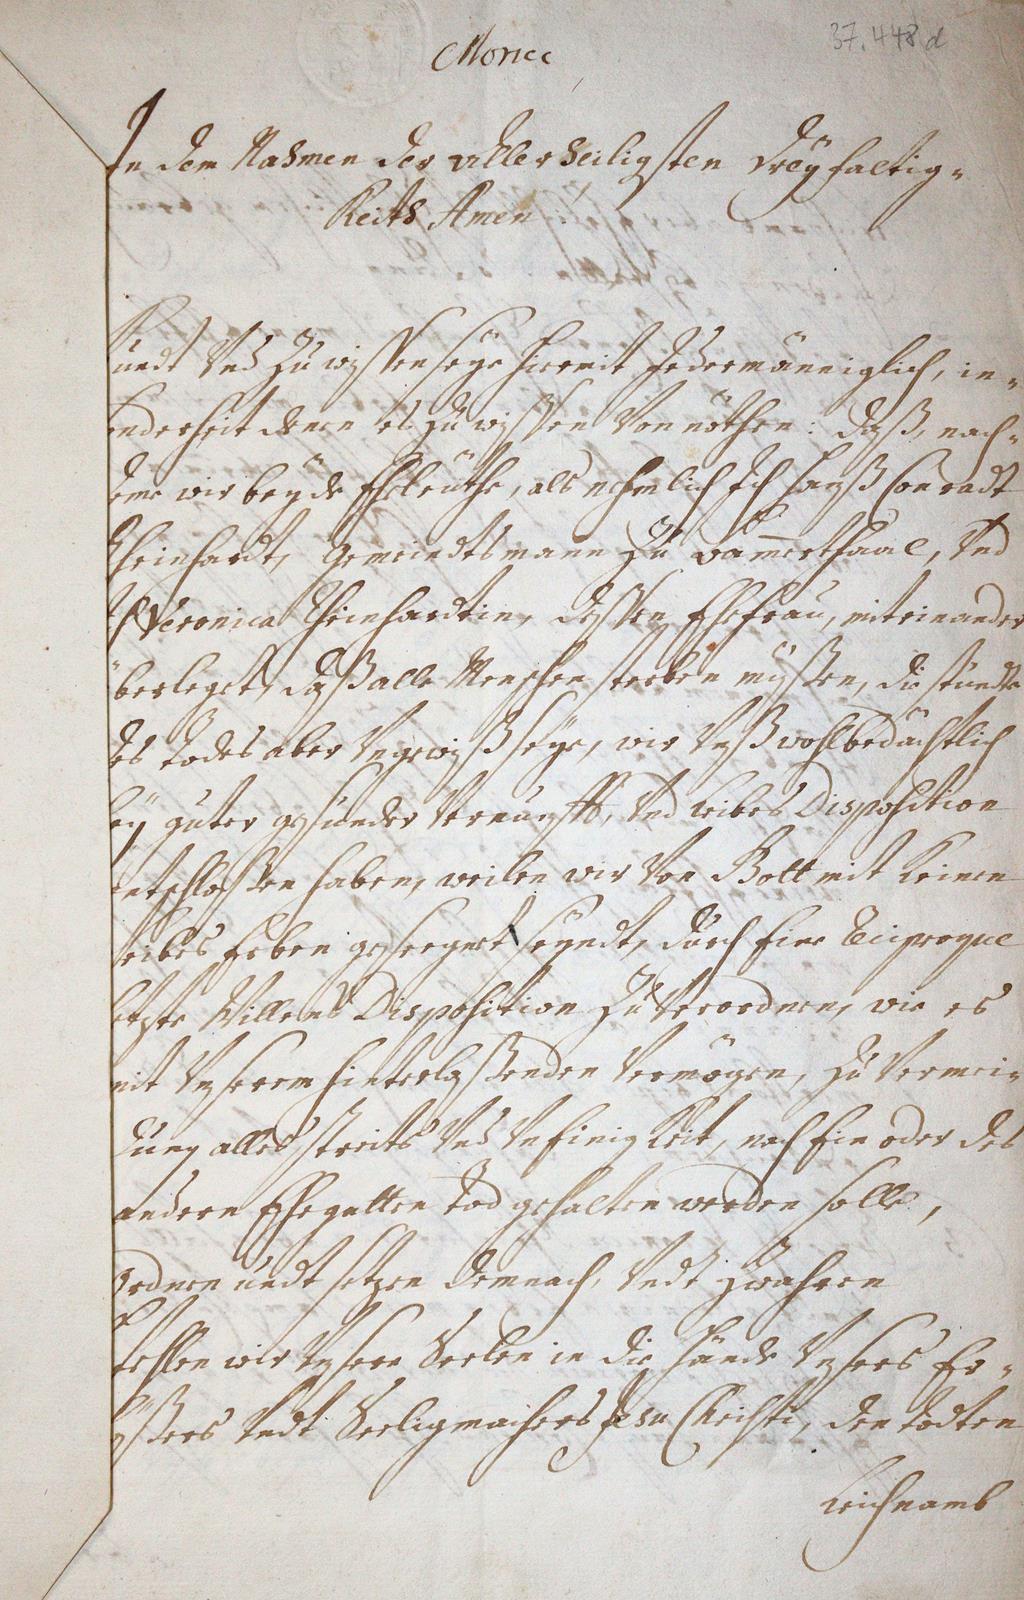 37.448 d
In dem Nahmen der allerheiligsten Dreÿfaltig-
keit Amen
Kundt Und Zu wißen seÿe hiermit Jedermänniglich, in-
sonderheit denen es zu wißen Von nöthen: daß, nach-
deme wir beÿde Eheleuthe, als nehmlich Ich Hanß Conradt
Rheinhardt, Gemeindtsmann Zu Vammerthaal, Und
Veronica Rheinhardtin, dessen Ehefrau, miteinander
überleget, daß alle Menschen sterben müßen, die stunde
des Todes aber Ungewiß seÿe, wir Unß wohlbedächtlich
beÿ guter gesunder Vernunfft, Und leibes Disposition
entschloßen haben, weilen wir Von Gott mit keinen
leibes Erben geseegnet seÿndt, durch Eine
letzte Willens Disposition Zu Verordnen, wie es
mit Unserem hinterlaßenden Vermögen, zu Vermei-
dung alles streits Und Uneinigkeit, nach Ein oder des
andern Ehegatten Tod gehalten werden solle,
Ordnen undt setzen demnach, Undt Zwahren
wir Unsere Seelen in die Hände Unsers Er-
lößers Undt Seeligmachers Jesu Christi, den todten
Leichnamb